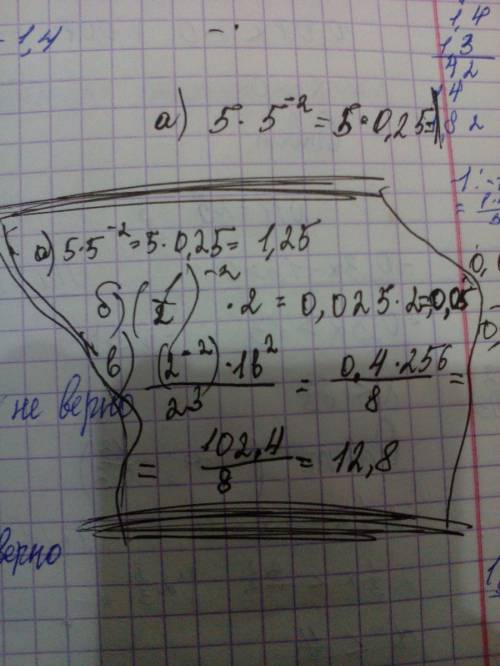 - 1,4
1,4
1,3
42
14
1,82
а) 5 · 5⁻² = 5 · 0,25 =
а) 5 · 5⁻² = 5 · 0,25 = 1,25
б) (1/2)⁻² · 2 = 0,025 · 2 = 0,05
в) (2⁻²) · 16² / 2³ = 0,4 · 256 / 8 =
не верно
= 102,4 / 8 = 12,8
верно